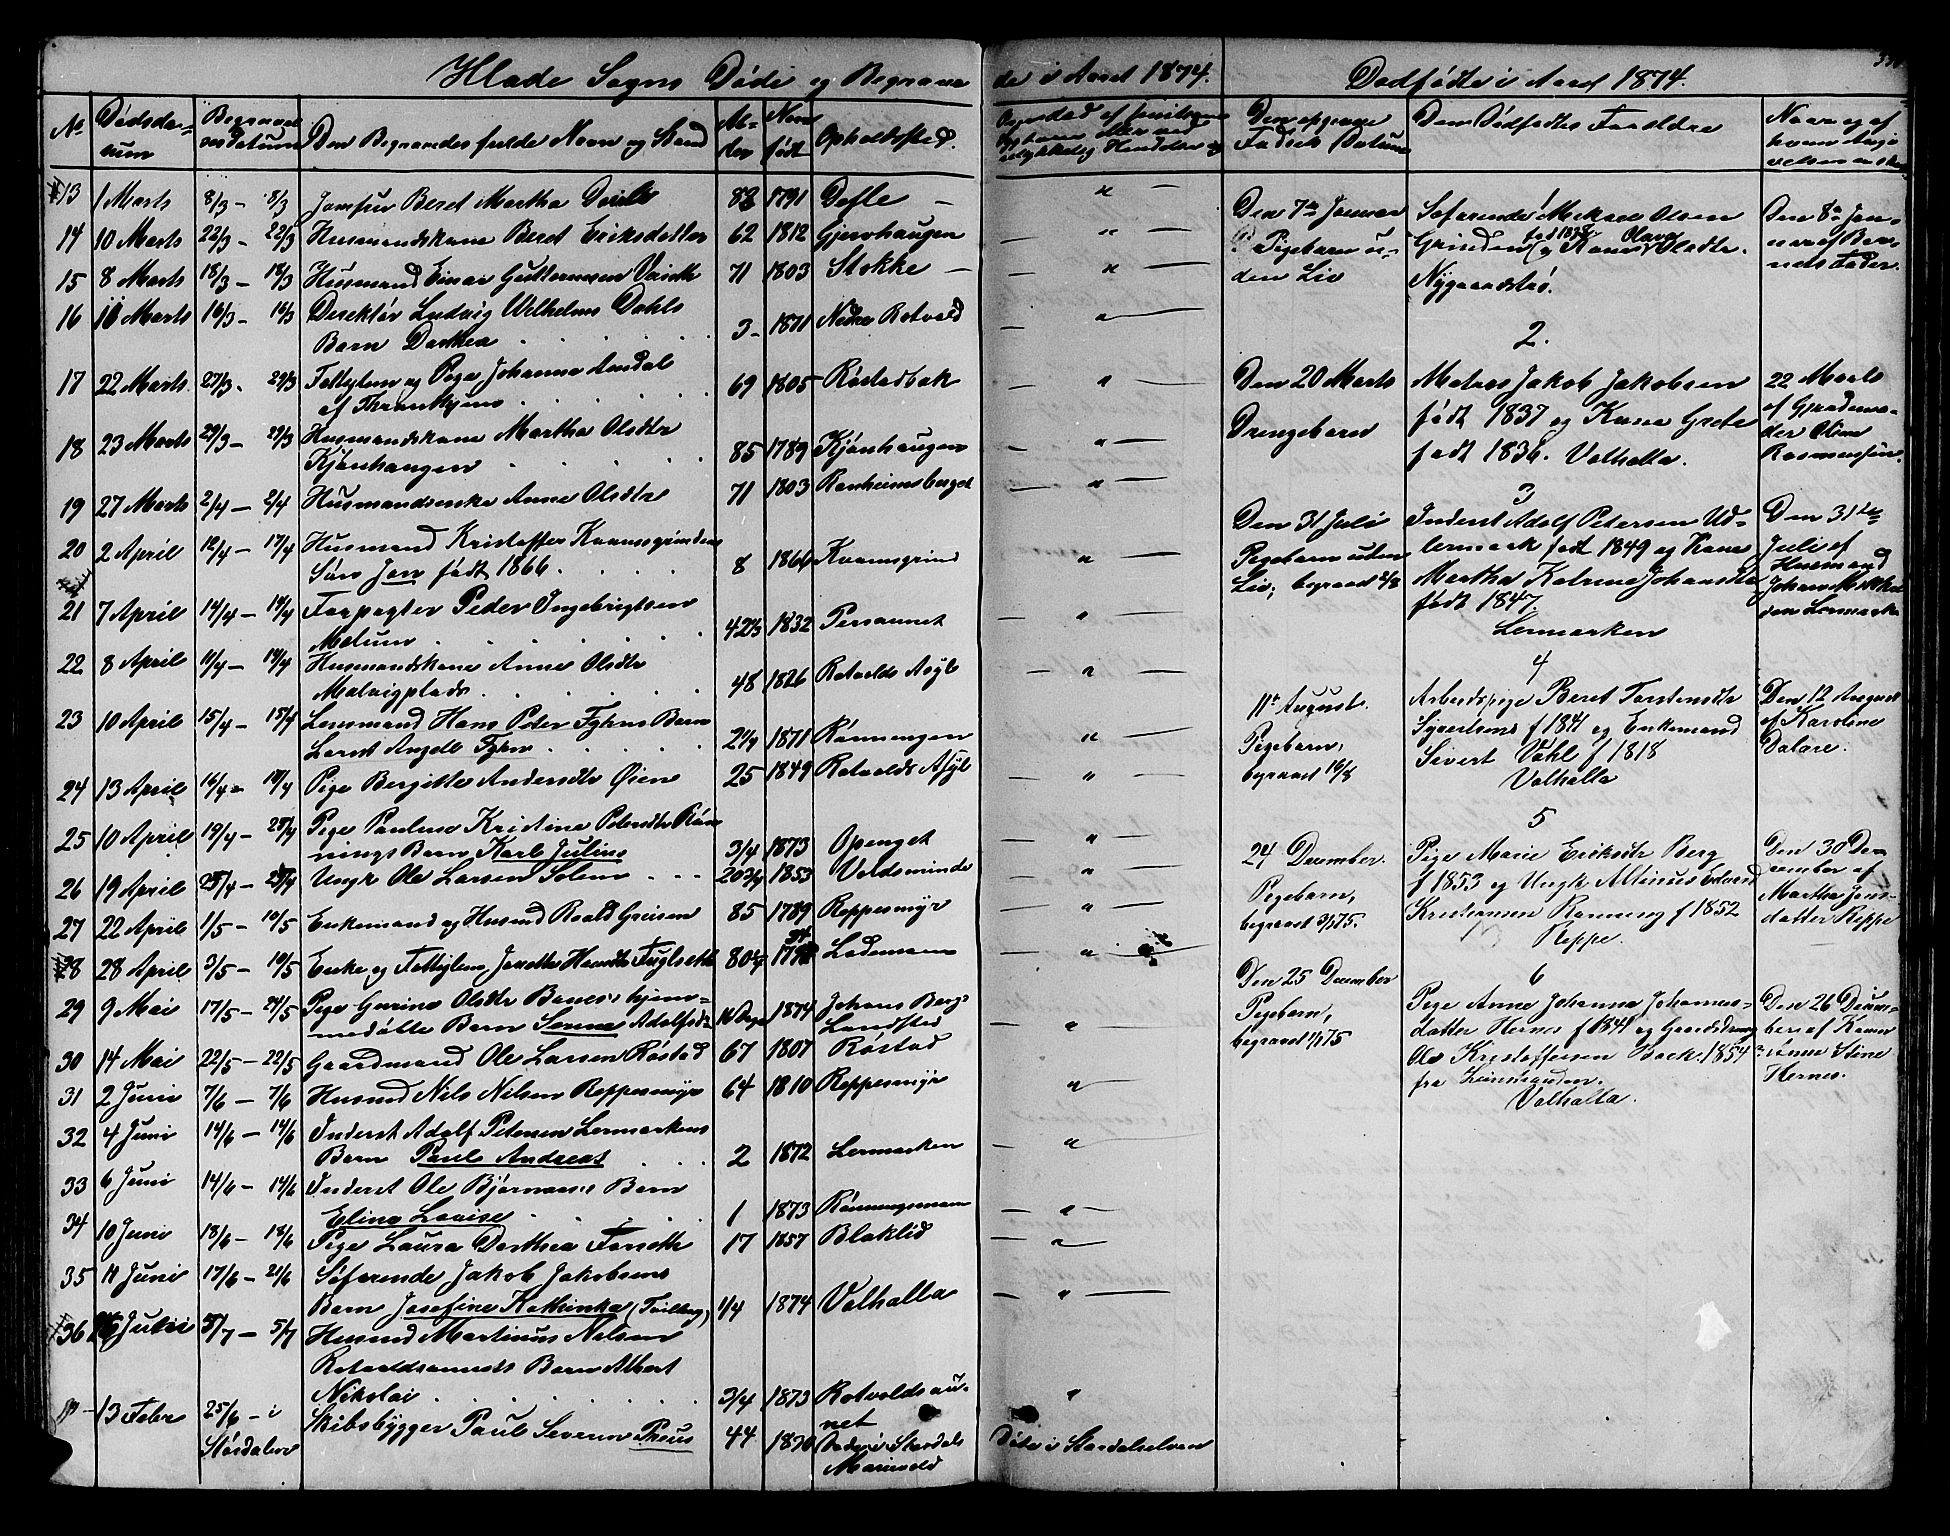 Hlade Sogns Døde og Begrave
de i Aaret 1874.
Dødfødte i Aaret 1874.
No
Dødsda-
tum
Begravel
sesdatum
Den Begravedes fulde Navn og Stand
Al-
der
Naar
født
Opholdsted.
Den opgivne
Fødsels Datum
Den Dødfødtes Forældre
Naar og af
hvem Angi
velsen er skeet
13 1 Marts 8/3 - 8/3 Jomfru Beret Martha 82 1791 Dofle -
14 10 Marts 22/3 - 22/3 Husmandskone Beret Eriksdatter 62 1812 Gjervhaugen
15 8 Marts 18/3 - 18/3 Husmand Einar Guttormsen 71 1803 Stokke -
16 10 Marts 16/3 - 16/3 Direktør Ludvig Wilhelms Dahls
Barn Dorthea 3- 1871 Nedre Rotvold
17 22 Marts 27/3 - 29/3 Fattiglem og Pige Johanna Arndal
af Thronhjem 69 1805 Røstadbak
18 23 Marts 29/3 - 29/3 Husmandskone Martha Olsdtr
Kjønhaugen 85 1789 Kjønhaugen
19 27 Marts 2/4 - 2/4 Husmandsenke Anne Olsdtr 71 1803 Ranheimsberget
20 2 April 12/4 - 17/4 Husmand Kristoffer Kvamsgrindens
Søn Jon født 1866 8 1866 Kvamsgrind
21 7 April 14/4 - 14/4 Forpagter Peder Ingebrigtsen
Melum 42 1832 Persaunet
22 8 April 11/4 - 14/4 Husmandskone Anne Olsdtr
Malvigplads 48 1826 Rotvolds Asyl
23 10 April 15/4 - 15/4 Lensmand Hans Peter Fyhns Barn
Laront Angell Fyhn 2 1871 Rønningen
24 13 April 16/4 - 18/4 Pige Bergitte Andersdtr Øien 25 1849 Rotvolds Asyl
25 10 April 19/4 - 25/4 Pige Pauline Kristine Petersdtr Røn
nings Barn Karl Julius 3/4 1873 Openget
26 19 April 25/4 - 25/4 Ungk Ole Larsen Solem 20 3/4 1853 Voldsminde
27 22 April 1/5 - 10/5 Enkemand og Husmd Roald Greisen 85 1789 Reppesmyr
28 28 April 3/5 - 10/5 Enke og Fattiglem Jonetta Fuglseth 80 Lademoen
29 9 Mai 17/5 - 24/5 Pige Gurine Olsdtr Banes hjem-
medøbte Barn Serine Adolfsdtr 16 Dage 1874 Johans Bergs
Landsted
30 14 Mai 22/5 - 22/5 Gaardmand Ole Larsen Røstad 67 1807 Røstad
31 2 Juni 7/6 - 7/6 Husmd Nils Nilsen Reppesmyr 64 1810 Reppesmyr
32 4 Juni 14/6 - 14/6 Inderst Adolf Petersen Lermarkens
Barn Paul Andreas 2 1872 Lermarken
33 6 Juni 14/6 - 14/6 Inderst Ole Bjørnaas's Barn
Eline Lovise 1 1873 Rønningsmoen
34 10 Juni 18/6 - 18/6 Pige Laura Dorthea Forseth 17 1857 Blaklid
35 11 Juni 17/6 - 21/6 Søfarende Jakob Jakobsens
Barn Josefine Kathinka (Tvilling) 1/4 1874 Valhalla
36 Juni 5/7 - 5/7 Husmd Martinus Nilsen
Rotvoldsaunets Barn Albert
Nikolai 3/4 1873 Rotvoldsau-
net
13 Febr 25/6 - i
Størdalen
Skibsbygger Paul Severin Preus 44 1830
Marievold
Døde i Størdalselven
Den 7de Januar
Pigebarn u-
den Liv
Søfarende Mekael Olsen
Grinden og Kone Olava Olsdtr.
Nygaardsbrø.
Den 8de Jan-
uar af Bar-
nets Fader.
2.
Den 20 Marts
Drengebarn
Matros Jakob Jakobsen
født 1837 og Kone Grete
født 1836. Valhalla.
22 Marts
af Gjordemo-
der Oline
Rasmussen.
3
Den 31 Juli
Pigebarn uden
Liv, begravet 2/8
Inderst Adolf Petersen Ud-
lermark født 1849 og Kone
Martha Katrine Johansdtr
født 1847.
Lermarken
Den 31te
Juli af
Husmand
Johan
Lermarken
4
11te August.
Pigebarn,
begravet 16/8
Arbeidspige Beret Torstensdtr
Syvertsens f 1841 og Enkemand
Sivert Vahl f 1818
Valhalla
Den 12 August
af Karoline
Dalare.
5
24 December.
Pigebarn,
begravet 3/1 75.
Pige Marie Eriksdtr Berg
f 1853 og Ungk Altinus Edvard
Kristiansen Rønning f 1852
Reppe.
Den 30 De-
cember af
Martha Jens-
datter Reppe
6
Den 25 December
Pigebarn,
begravet 1/1 75
Pige Anne Johanna Johannes-
datter Hernes f 1841 og Gaardsdreng
Ole Kristoffersen Bock. 1854
fra
Valhalla.
Den 26 Decem-
ber af Kone
Stine
Hernes.